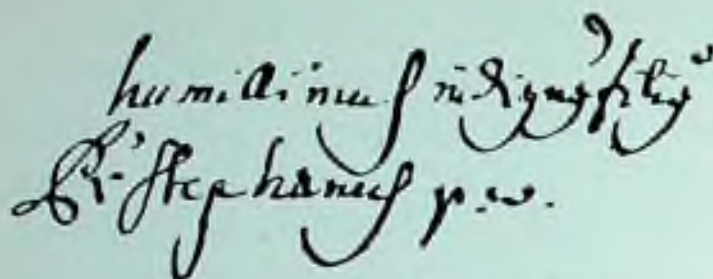 humillimus indignus filius
Fr. Stephanus p.w.